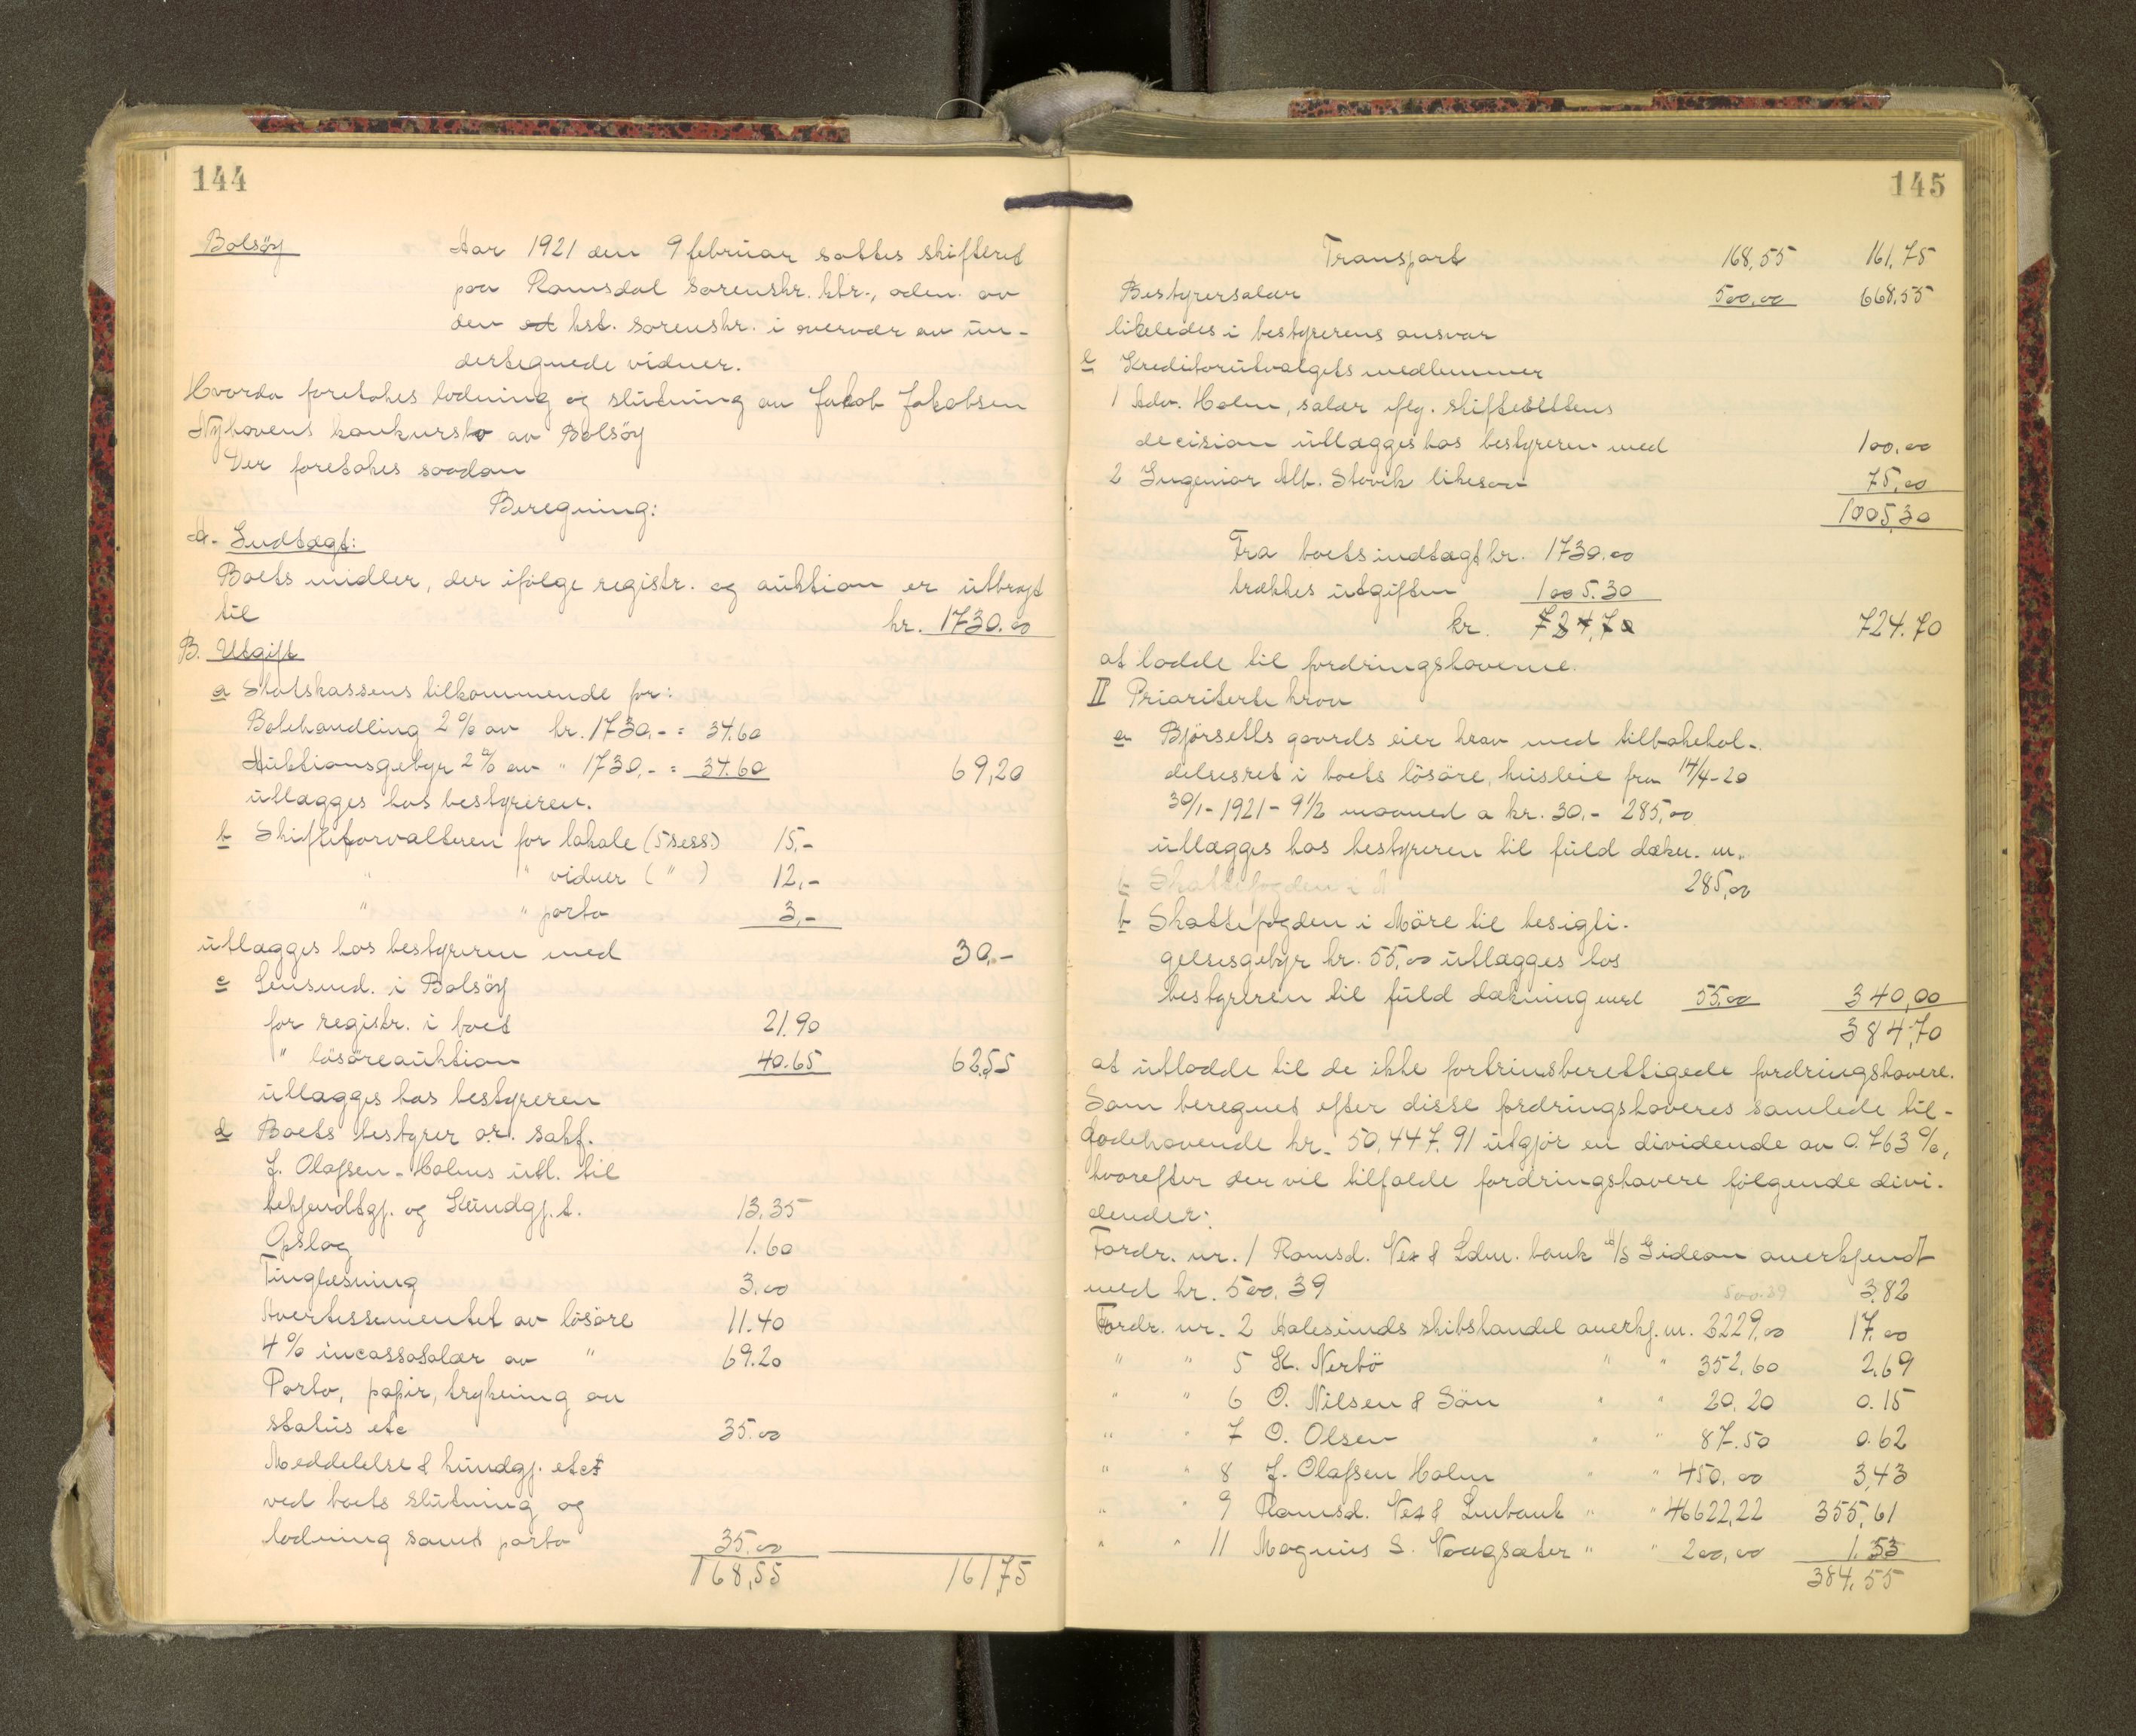 144
Bolsöy
Aar 1921 den 9 februar sattes skifteret
paa Romsdal sorenskr. ktr., adm. av
den kst. sorenskr. i overvær av un-
dertegnede vidner.
Hvorda foretokes lodning og slutning av Jakob Jakobsen
Nyhavens konkursbo av Bolsöy
Der foretokes saadan
Beregning:
A. Indtægt:
Boets midler, der ifölge registr. og auktion er utbragt
til kr. 1730.00
B. Utgift
a Statskassens tilkommende for:
Bobehandling 2% av kr. 1730.- = 34.60
Auktionsgebyr 2% av " 1730.- = 34.60 69,20
utlægges hos bestyreren.
b Skifteforvalteren for lokale (5 sess.) 15.-
" " vidner ( " ) 12.-
" " porto 3.-
utlægges hos bestyreren med 30.-
c Lensmd. i Bolsöy
for registr. i boet 21.90
" lösöreauktion 40.65 62,55
utlægges hos bestyreren
d Boets bestyrer o.r. sakf.
J. Olafsen-Holms utl. til
bekjendtgj. og Kundgj.t. 13.35
Opslag 1.60
Tinglæsning 3.00
Avertissementet av lösöre 11.40
4% incassosalær av " 69.20
Porto, papir, trykning av
status etc 35.00
Meddelelse & kundgj. etc
ved boets slutning og
lodning samt porto 35.00
168,55 161,75
145
Transport 168,55 161,75
Bestyrersalær 500,00 668,55
likeledes i bestyrerens ansvar
e Kreditorutvalgets medlemmer
1 Adv. Holm, salær iflg. skifterettens
decision utlægges hos bestyreren med 100,00
2 Ingeniør Alb. Stovik likesaa 75,00
1005,30
Fra boets indtægt kr. 1730.00
trækkes utgiften 1005.30
kr. 724,70 724.70
at lodde til fordringshaverne.
II Prioriterte krav
a Björsets gaards eier krav med tilbakehol-
delsesret i boets lösöre, husleie fra 14/4-20
30/1-1921 - 9 1/2 maaned a kr. 30.- 285,00
utlægges hos bestyreren til fuld dækn. m.
b Skattefogden i M 285,00
b Skattefogden i Möre til besigti-
gelsesgebyr kr. 55,00 utlægges hos
bestyreren til fuld dækning med 55,00 340,00
384,70
at utlodde til de ikke fortrinsberettigede fordringshavere.
Som beregnet efter disse fordringshaveres samlede til-
godehavende kr. 50,447.91 utgjör en dividende av 0.763%,
hvorefter der vil tilfalde fordringshavere følgende divi-
dender:
Fordr. nr. 1 Romsd. Vex & Ldm. bank Gideon anerkjendt
med kr. 500.39 500.39 3.82
Fordr. nr. 2 Aalesunds skibshandel anerkj. m. 2229,00 17.00
" " 5 K. Nerbö " " 352,60 2,69
" " 6 O. Nilsen & Sön " " 20,20 0.15
" " 7 O. Olsen " " 87.50 0.62
" " 8 J. Olafsen Holm " " 450,00 3,43
" " 9 Romsd. Vex & Lmbank " " 46622,22 355,61
" " 11 Magnus S. Vaagsæter " " 200,00 1.53
384,55